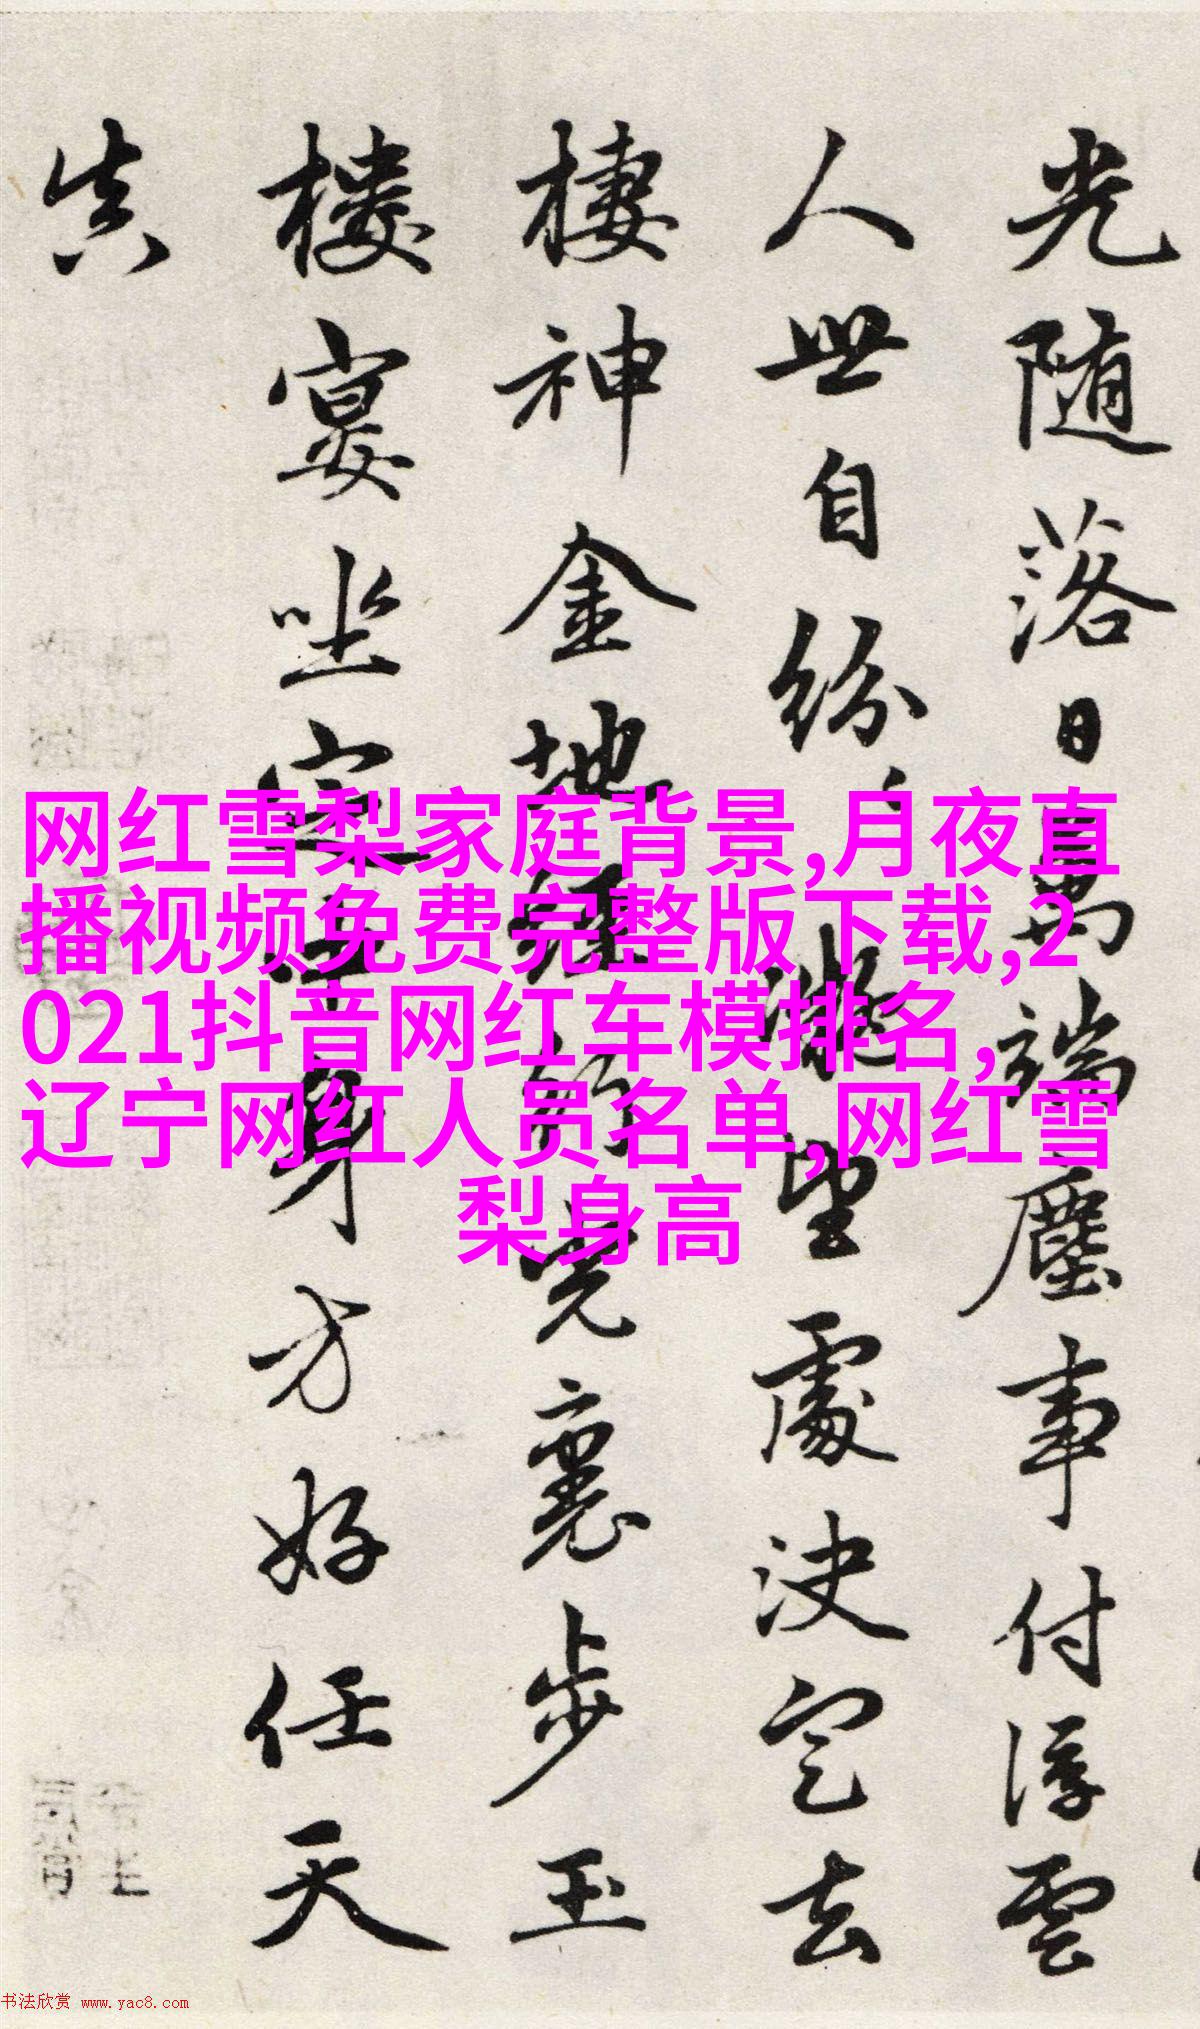 光随落日萬端塵事付浮雲
人世自紛〻凝望處決定去
棲神金地經行覺裏步玉
樓宴坐寂子身方好任天
真
网红雪梨家庭背景,月夜直
播视频免费完整版下载,2
021抖音网红车模排名,
辽宁网红人员名单,网红雪
梨身高
书法欣赏 www.yac8.com